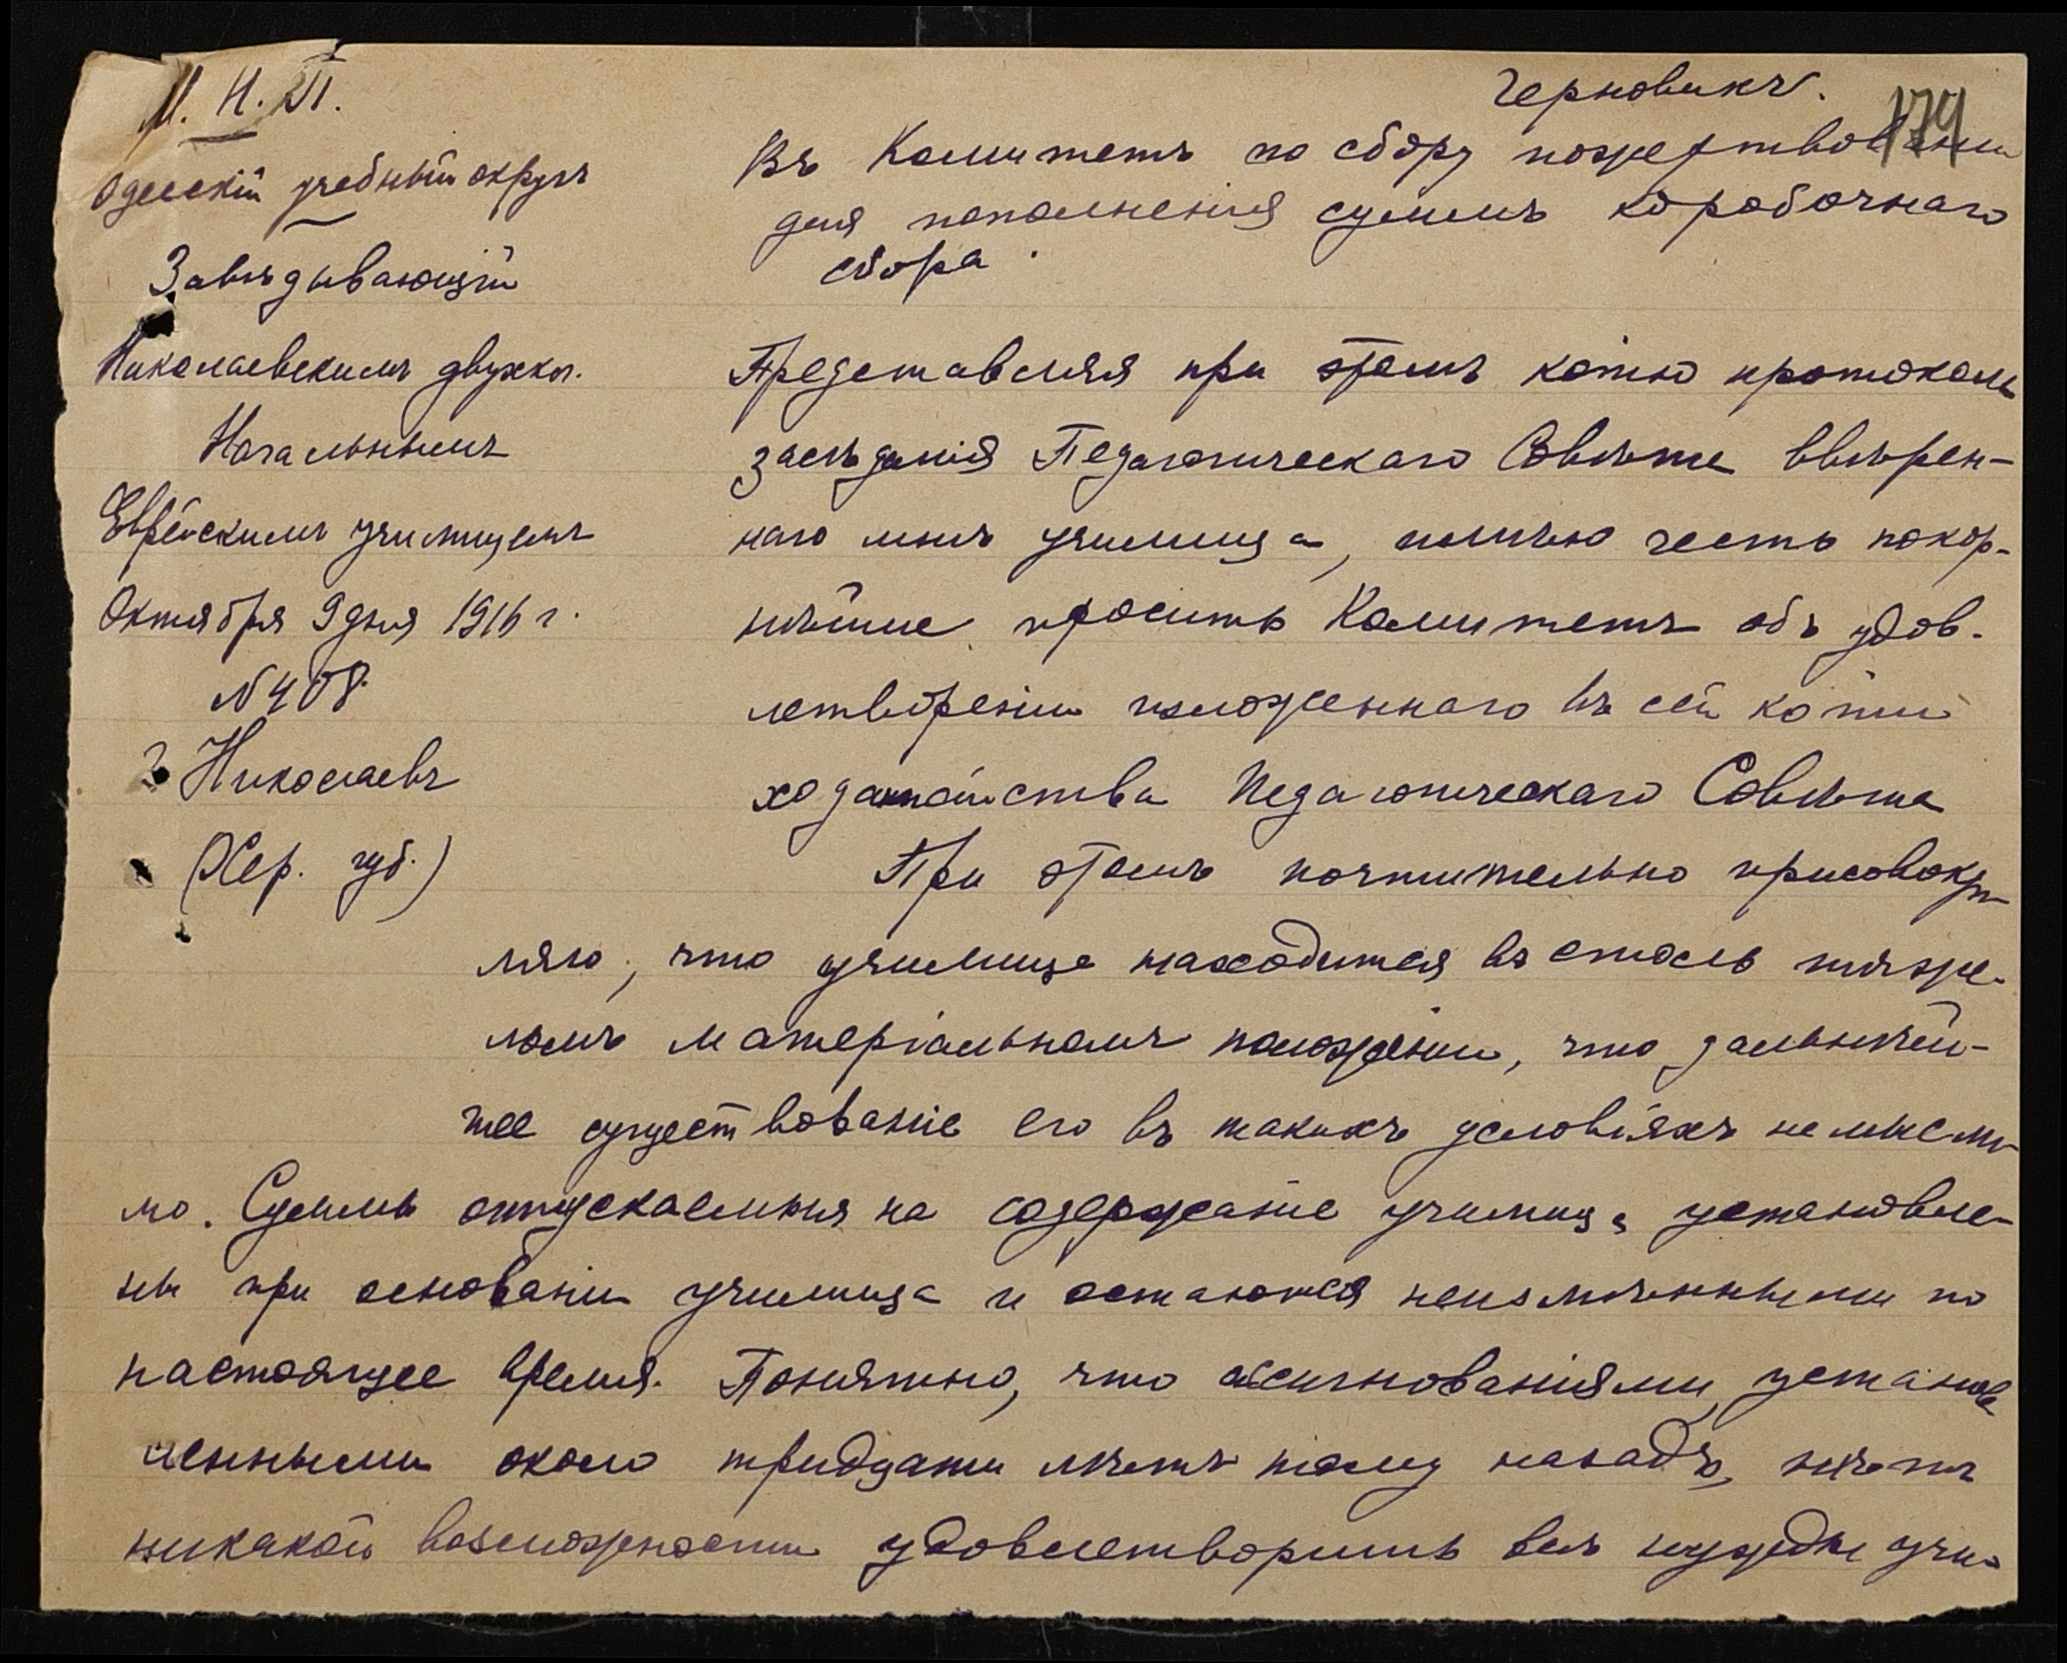 М. Н. П.
Одесскій учебный округъ
Завѣдывающій
Николаевскимъ двухкл.
Начальнымъ
Еврейскимъ училищемъ
Октября 9 дня 1916 г.
№ 408
г. Николаевъ
(Хер. губ.)
Черновикъ.
179
Въ Комитетъ по сбору пожертвованій
для пополненія суммъ коробочнаго
сбора.
Представляя при этомъ копію протокола
засѣданія Педагогическаго Совѣта ввѣрен-
наго мнѣ училища, имѣю честь покор-
нѣйше просить Комитетъ объ удов-
летвореніи изложеннаго въ сей копіи
ходатайства Педагогическаго Совѣта
При этомъ почтительно присовокуп-
ляю, что училище находится въ столь тяже-
ломъ матеріальномъ положеніи, что дальнѣй-
шее существованіе его въ такихъ условіяхъ немысли-
мо. Суммы отпускаемыя на содержаніе училища установле-
ны при основаніи училища и остаются неизмѣнными по
настоящее время. Понятно, что ассигнованіями, установ
ленными около тридцати лѣтъ тому назадъ, нѣтъ
никакой возможности удовлетворить всѣ нужды учи-